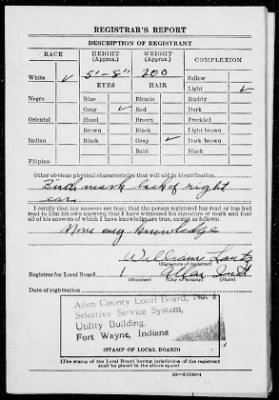 REGISTRAR'S REPORT
DESCRIPTION OF REGISTRANT
RACE HEIGHT (Approx.) WEIGHT (Approx.) COMPLEXION
White ✓ 5'-8" 200 Sallow
EYES HAIR Light ✓
Negro Blue Blonde Ruddy
Gray ✓ Red Dark
Oriental Hazel Brown Freckled
Brown Black Light brown
Indian Black Gray ✓ Dark brown
Bald Black
Filipino
Other obvious physical characteristics that will aid in identification
Birth mark back of right
ear
I certify that my answers are true; that the person registered has read or has had read to him his own answers; that I have witnessed his signature or mark and that all of his answers of which I have knowledge are true, except as follows:
None my knowledge
William
(Signature of registrar)
Registrar for Local Board 1 Allen Ind
(Number) (City or county) (State)
Date of registration
Allen County Local Board, No. 1
Selective Service System,
Utility Building,
Fort Wayne, Indiana
(STAMP OF LOCAL BOARD)
(The stamp of the Local Board having jurisdiction of the registrant shall be placed in the above space.)